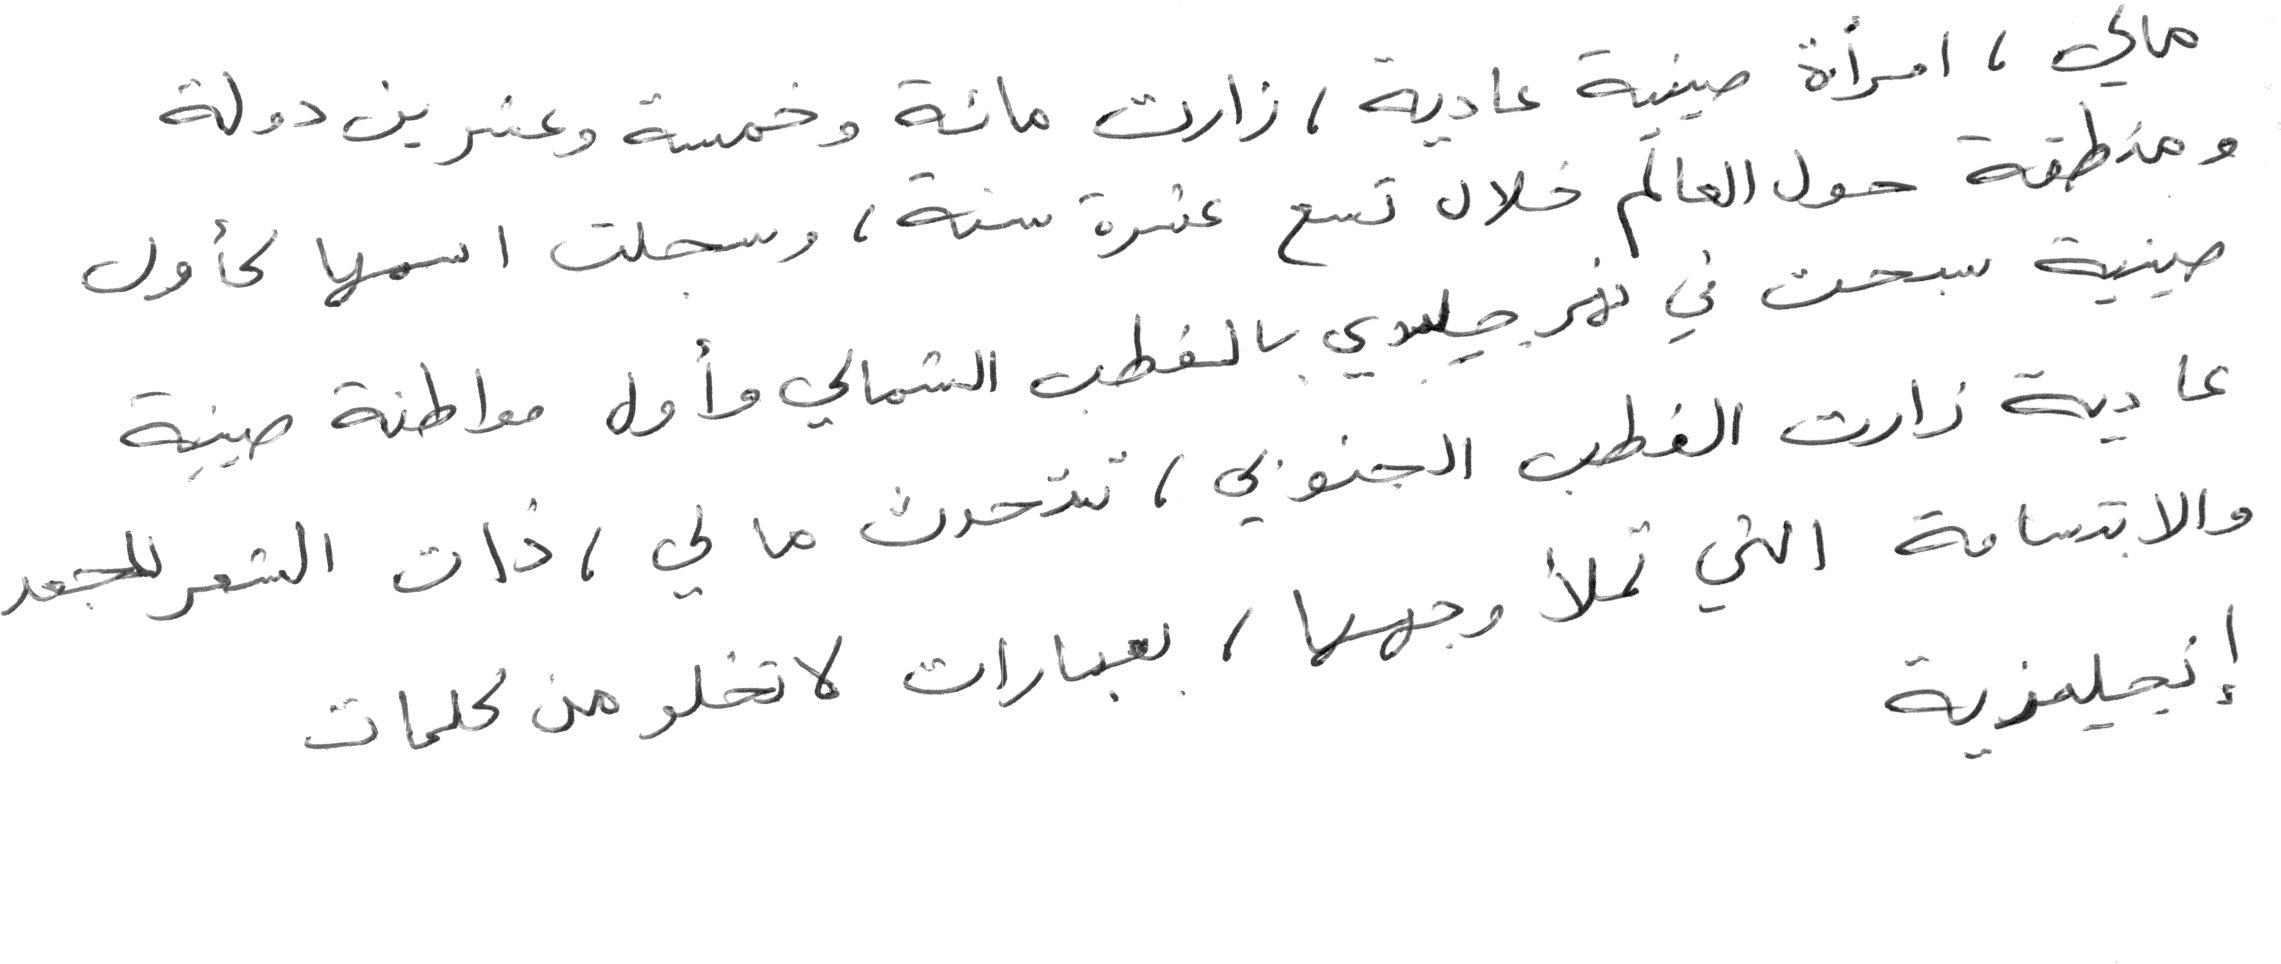 مالي ، امرأة صينية عادية ، زارت مائة وخمسة وعشرين دولة
ومنطقة حول العالم خلال تسع عشرة سنة ، وسجلت اسمها كأول
صينية سبحت في نهر جليدي بالقطب الشمالي وأول مواطنة صينية
عادية زارت القطب الجنوبي ، تتحدث مالي ، ذات الشعر المجعد
والابتسامة التي تملأ وجهها ، بعبارات لا تخلو من كلمات
إنجليزية